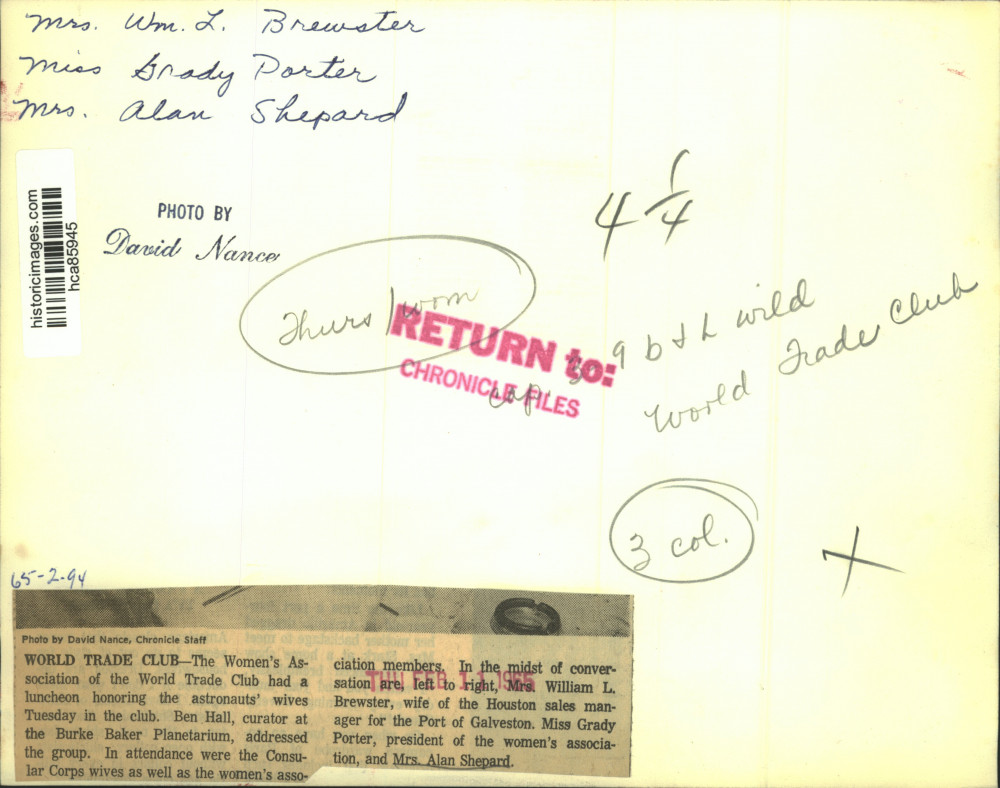 Mrs. Wm. L. Brewster
Miss Grady Porter
Mrs. Alan Shepard
historicimages.com
hca85945
PHOTO BY
David Nance
4 1/4
Thurs/wom
RETURN to:
CHRONICLE FILES
cap. 3 9 b + L wild
World Trade Club
3 col.
X
65-2-94
Photo by David Nance, Chronicle Staff
WORLD TRADE CLUB—The Women's As-
sociation of the World Trade Club had a
luncheon honoring the astronauts' wives
Tuesday in the club. Ben Hall, curator at
the Burke Baker Planetarium, addressed
the group. In attendance were the Consu-
lar Corps wives as well as the women's asso-
ciation members. In the midst of conver-
sation are, left to right, Mrs. William L.
THU FEB 11 1965
Brewster, wife of the Houston sales man-
ager for the Port of Galveston. Miss Grady
Porter, president of the women's associa-
tion, and Mrs. Alan Shepard.